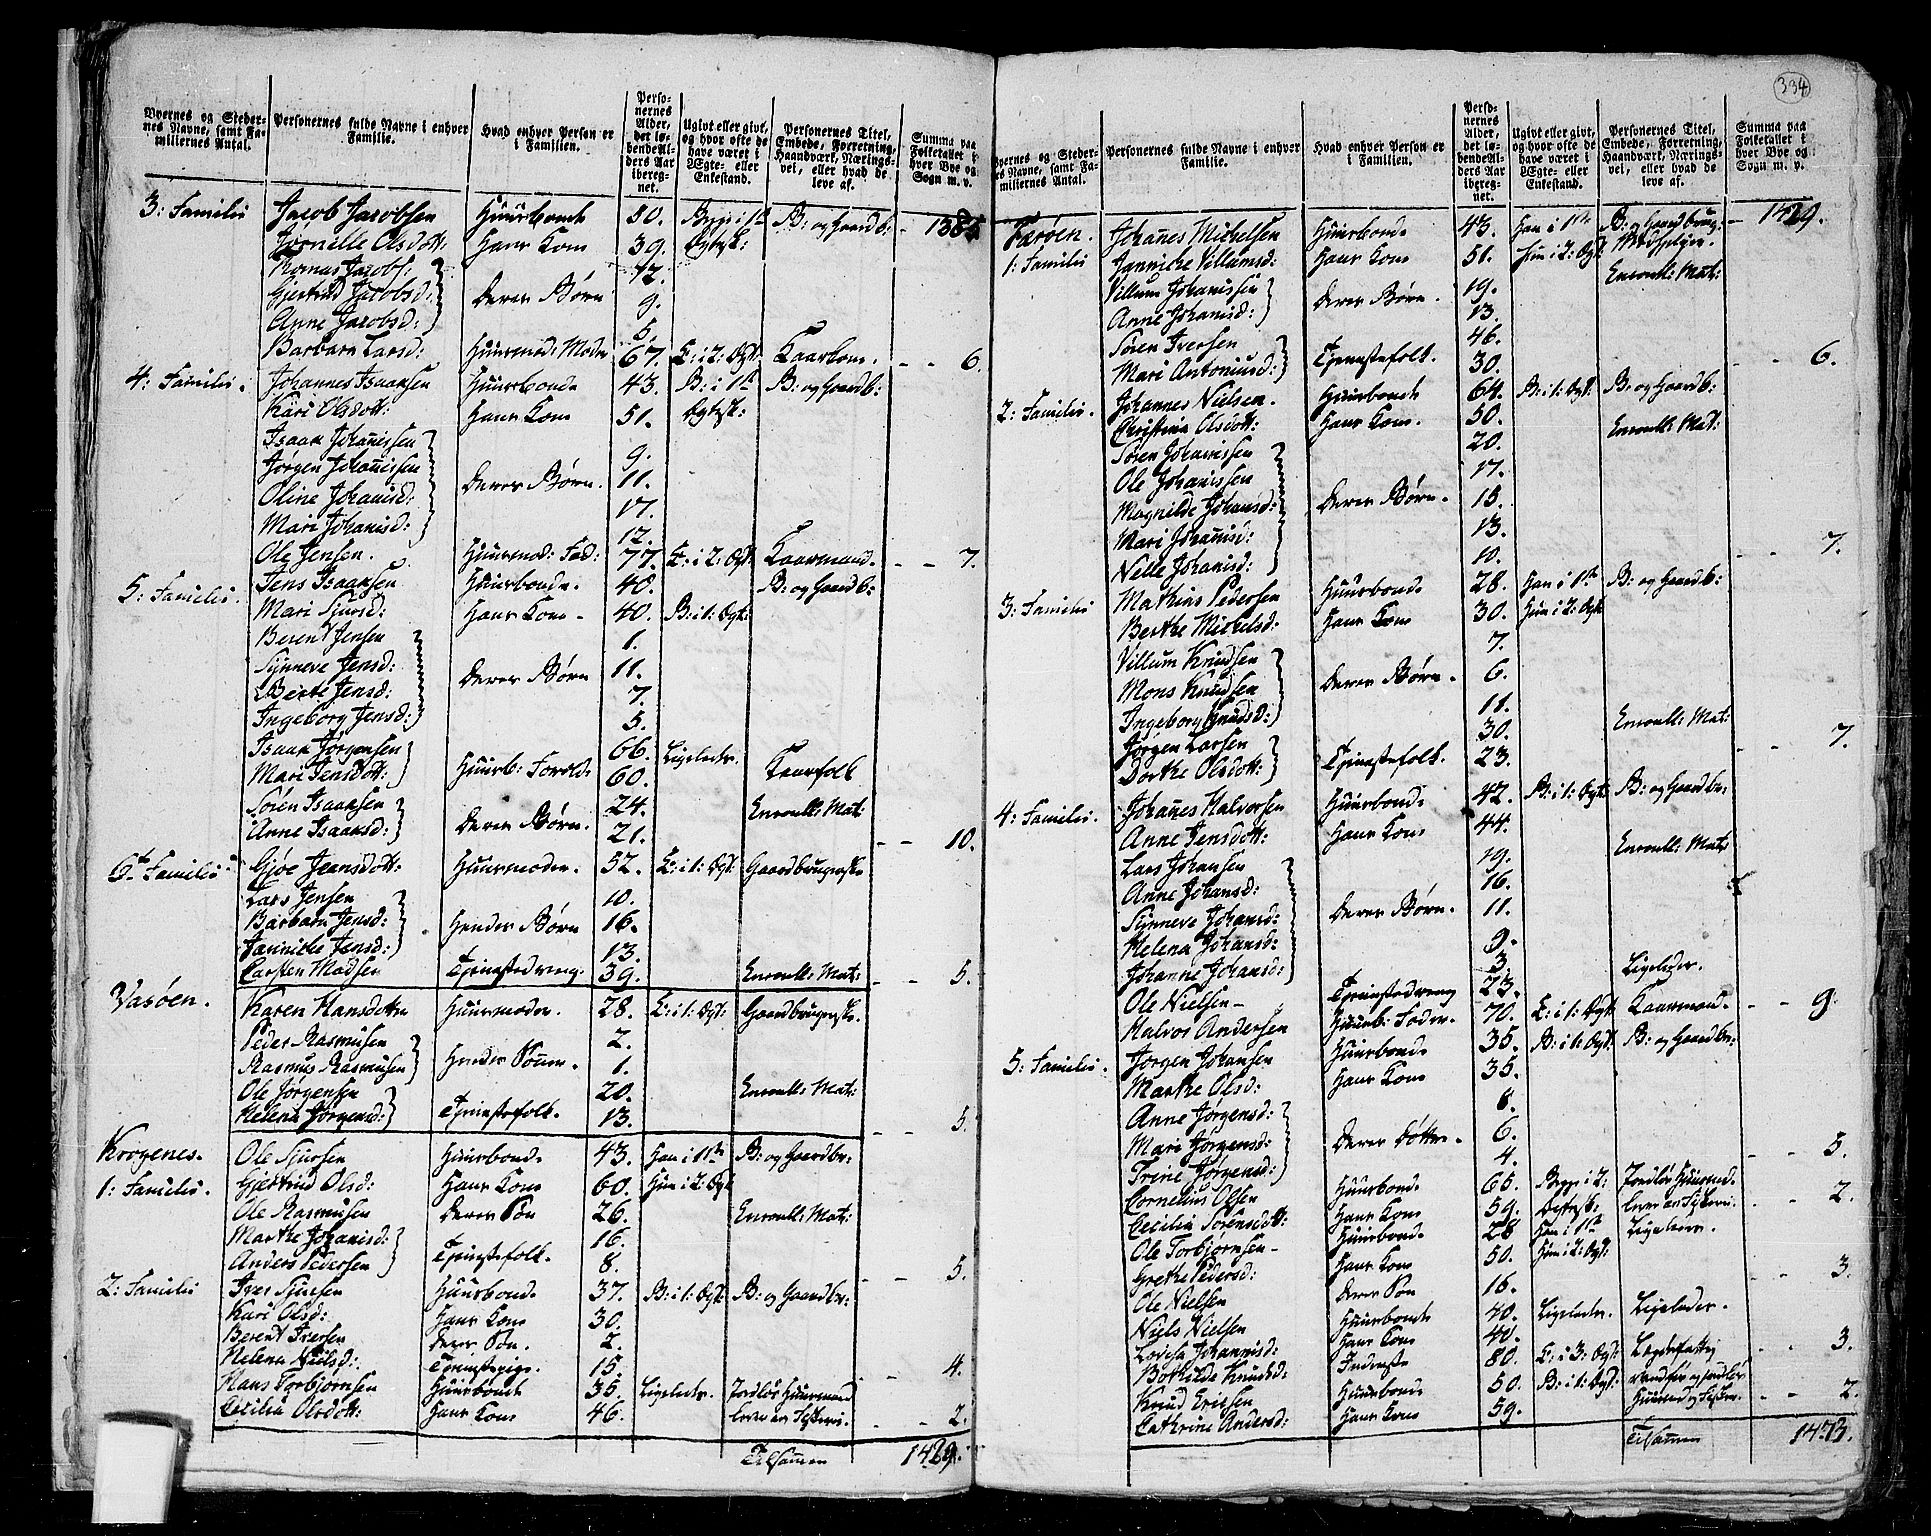 334
Byernes og Steder-
nes Navne, samt Fa-
miliernes Antal.
Personernes fulde Navne i enhver
Familie.
Hvad enhver Person er
i Familien.
Perso-
nernes
Alder,
det lø-
bende Al-
ders Aar
iberegnet.
Ugivt eller givt,
og hvor ofte de
have været i
Ægte- eller
Enkestand.
Personernes Titel,
Embede, Forretning,
Haandværk, Nærings-
vei, eller hvad de
leve af.
Summa paa
Folketallet i
hver Bye og
Sogn m. v.
3: Familie Jacob Jacobsen Huusbonde 50. Begge i 1te B: og Gaardb: 1385
Jørnille Olsdott: Hans Kone 39. Ægtesk:
Thomas Jacobs: 12.
Gjertrud Jacobsd: Deres Børn 9.
Anne Jacobsd: 5.
Barbara Larsd: Huusmod: Moder 67. E: i 2: Ægt: Kaarkone. 6.
4: Familie. Johannes Isaaksen Huusbonde 43. B: i 1te B: og Gaardb:
Kari Olsdott: Hans Kone 51. Ægtesk:
Isaak Johannissen 9.
Jørgen Johannissen Deres Børn. 11.
Oline Johanisd: 17.
Mari Johanisd: 12.
Ole Jensen. Huusmod: Fad: 77. E: i 2: Ægt: Kaarmand. 7.
5: Familie. Jens Isaaksen Huusbonde. 40. B: og Gaardb:
Mari Sjursd: Hans Kone 40. B: i 1: Ægt:
Berent Jensen 1.
Synneve Jensd: Deres Børn 11.
Berte Jensd: 7.
Ingeborg Jensd: 5.
Isaak Jørgensen 66. Ligeledes.
Mari Jensdott: Huusb: Foreld: 60. Kaarfolk
Søren Isaaksen 24. Enroull: Mat:
Anne Isaaksd: Deres Børn. 21. 10.
6te Familie Gjøe Jeansdott: Huusmoder. 52. E: i 1: Ægt: Gaardbrugerske
Lars Jensen 10.
Barbara Jensd: Hendes Børn 16.
Jannicke Jensd: 13.
Carsten Madsen Tjenestedreng. 39. Enroull: Mat: 5.
Vasøen. Karen Hansdotter Huusmoder. 28. E: i 1: Ægt: Gaardbrugerske.
Peder Rasmusen 2.
Rasmus Rasmusen Hendes Sønner. 1.
Ole Jørgensen 20. Enroull: Mat:
Helena Jørgensd: Tjenestefolk. 13. 5.
Krogenes. Ole Sjursen Huusbonde. 43. Han i 1te B: og Gaardbr:
1: Familie. Gjertrud Olsd: Hans Kone 60. Hun i 2: Ægt
Ole Rasmusen Deres Søn 26. Enroull: Mat:
Marthe Johanisd: 16.
Anders Pedersen Tjenestefolk. 8. 5.
2: Familie Iver Sjursen Huusbonde 37. B: i 1: Ægt: B: og Gaardbr:
Kari Olsd: Hans Kone 30.
Berent Iversen Deres Søn. 2.
Helena Nielsd: Tjenestepige. 15. 4.
Hans Torbjørnsen Huusbonde 35. Ligeledes. Jordløs Huusmand
Cecilia Olsdott: Hans Kone 46. lever av Fiskeri. 2.
Tilsammen 1429.
Byernes og Steder-
nes Navne, samt Fa-
miliernes Antal.
Personernes fulde Navne i enhver
Familie.
Hvad enhver Person er
i Familien.
Perso-
nernes
Alder,
det lø-
bende Al-
ders Aar
iberegnet.
Ugivt eller givt,
og hvor ofte de
have været i
Ægte- eller
Enkestand.
Personernes Titel,
Embede, Forretning,
Haandværk, Nærings-
vei, eller hvad de
leve af.
Summa paa
Folketallet i
hver Bye og
Sogn m. v.
Færøen. Johanes Michelsen Huusbonde 43. Han i 1te B: og Gaardbrug: 1429.
1: Familie Jannicke Villumsd: Hans Kone 51. Hun i 2: Ægt:
Villum Johanissen 19. Enroull: Mat:
Anne Johanisd: Deres Børn. 13.
Søren Iversen 46.
Mari Antoniusd: Tjenestefolk. 30. 6.
2: Familie. Johannes Nielsen. Huusbonde 64. B: i 1: Ægt: B: og Gaardb:
Christina Olsdott: Hans Kone. 50.
Søren Johanissen 20. Enroull: Mat:
Ole Johanissen 17.
Magnilde Johansd: Deres Børn. 15.
Mari Johanisd: 13.
Nelle Johanisd: 10. 7.
3: Familie Mathias Pedersen Huusbonde 28. Han i 1te B: og Gaardb:
Berthe Michelsd: Hans Kone 30. Hun i 2: Ægt:
Villum Knudsen 7.
Mons Knudsen Deres Børn. 6.
Ingeborg Knudsd: 11.
Jørgen Larsen 30. Enroull: Mat:
Dorthe Olsdott: Tjenestefolk. 23. 7.
4: Familie. Johanes Halvorsen Huusbonde 42. B: i 1: Ægt: B: og Gaardbr:
Anne Jensdott: Hans Kone 44.
Lars Johansen 19. Enroull: Mat:
Anne Johansd: 16.
Synneve Johansd: Deres Børn. 11.
Helena Johansd: 9.
Johanne Johansd: 3.
Ole Nielsen Tjenestedreng 23. Ligeledes.
Halvor Andersen Huusb: Fader. 70. E: i 1: Ægt: Kaarmand. 9.
5: Familie. Jørgen Johansen Huusbonde 35. B: i 1: Ægt: B: og Gaardbr:
Marthe Olsd: Hans Kone 35.
Anne Jørgensd: 8.
Mari Jørgensd: Deres Døttre. 6.
Trine Jørgensd: 4. 5.
Cornelius Olsen Huusbonde 66. Begge i 2: Jordløs Huusmand
Cecilia Sørensdott: Hans Kone 59. lever av Fiskeri. 2.
Ole Torbjørnsen Huusbonde 28 Han i 1te Ligeledes.
Grethe Pedersd: Hans Kone 50. Hun i 2: Ægt:
Ole Nielsen Deres Søn 16. 3.
Niels Nielsen Huusbonde 40. Ligeledes. Ligeledes.
Lovisa Johannisd: Hans Kone 40.
Bothilde Knudsd: Inderste 80. E: i 3: Ægt: 3.
Knud Ericsen Huusbonde 50. B: i 1: Ægt:
Cathrine Andersd: Hans Kone 59. 2.
Tilsammen 1473.